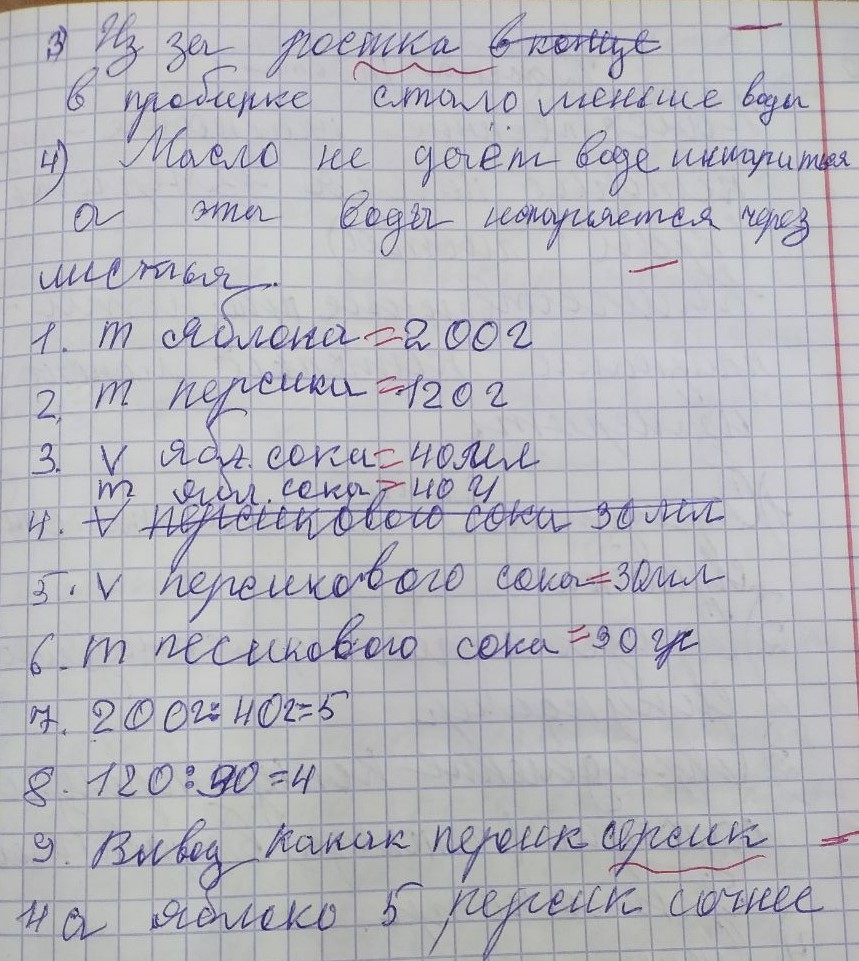 3 Из за ростка в конце
в пробирке стало меньше воды
4) Масло не даёт воде испариться
а эта воды испаряется через
листья.
1. m яблока = 200г
2. m персика = 120г
3. V ябл. сока = 40мл
m ябл. сока = 40 г
4. V персикового сока 30 мл
5. V персикового сока = 30мл
6. m песикового сока = 30 гр
7. 200г : 40г = 5
8. 120 : 30 = 4
9. Вывод персик
4 а яблоко 5 персик сочнее